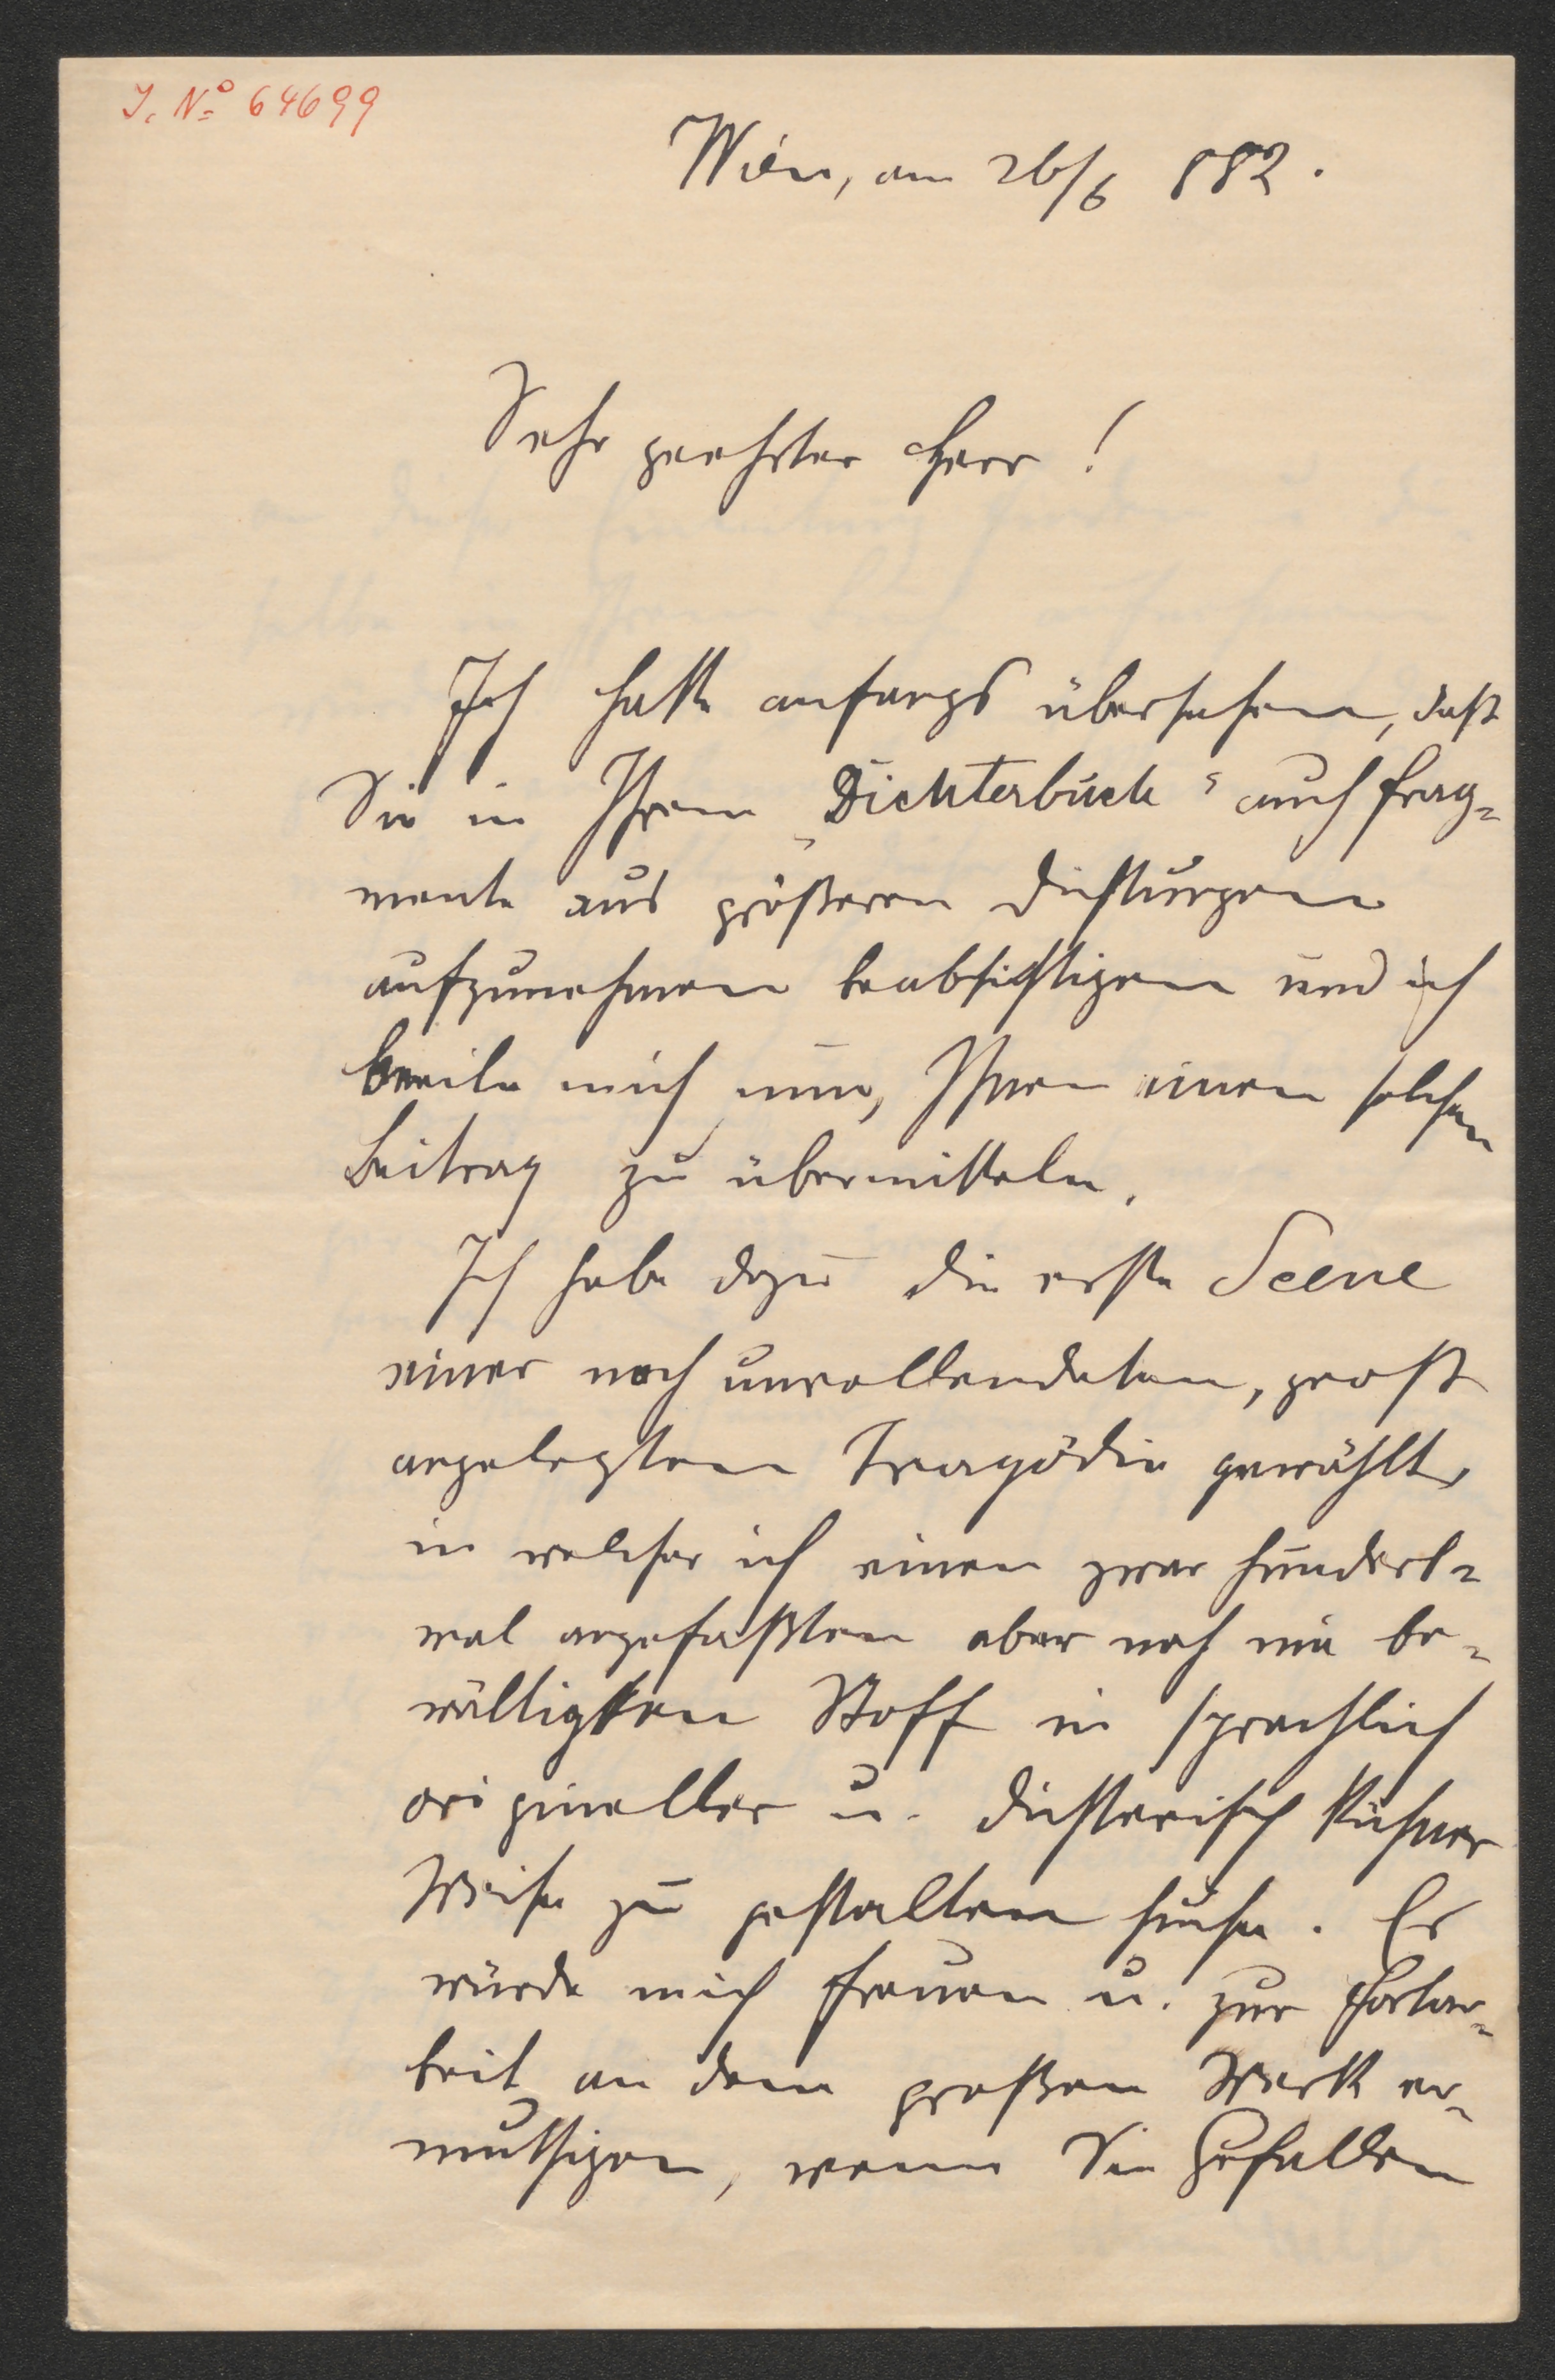 I. Nº 64699
Wien, am 26/6 882.
Sehr geehrter Herr!
Ich hatte anfangs übersehen, daß
Sie in Ihrem „Dichterbuch“ auch Frag=
mente aus größeren Dichtungen
aufzunehmen beabsichtigen und ich
beeile mich nun, Ihnen einen solchen
Beitrag zu übermitteln.
Ich habe dazu die erste Scene
einer noch unvollendeten, groß
angelegten Tragödie gewählt,
in welcher ich einen zwar hundert=
mal angefaßten aber noch nie be=
wältigten Stoff in sprachlich
origineller u. dichterisch kühner
Weise zu gestalten suche. Es
würde mich freuen u. zur Fortar=
beit an dem großen Werk er=
muthigen, wenn Sie Gefallen